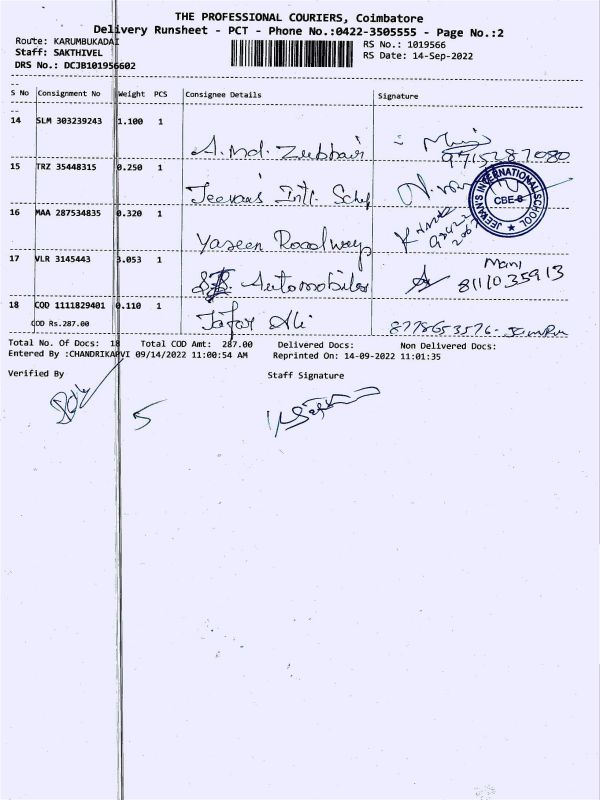 THE PROFESSIONAL COURIERS, Coimbatore
Delivery Runsheet - PCT - Phone No.:0422-3505555 - Page No.:2
Route: KARUMBUKADAI
Staff: SAKTHIVEL
DRS No.: DCJB101956602
RS No.: 1019566
RS Date: 14-Sep-2022
S No Consignment No Weight PCS Consignee Details Signature
14 SLM 303239243 1.100 1
A. Md. Zubbair 9715287080
15 TRZ 35448315 0.250 1
Jeevans Intl. School
JEEVAN'S INTERNATIONAL SCHOOL
CBE-8
16 MAA 287534835 0.320 1
Yaseen Roadways
17 VLR 3145443 3.053 1
Automobiles Mani
8111035913
18 COD 1111829401 0.110 1
COD Rs.287.00
Jafar Ali 8778653576-
Total No. Of Docs: 18 Total COD Amt: 287.00 Delivered Docs: Non Delivered Docs:
Entered By :CHANDRIKAPVI 09/14/2022 11:00:54 AM Reprinted On: 14-09-2022 11:01:35
Verified By Staff Signature